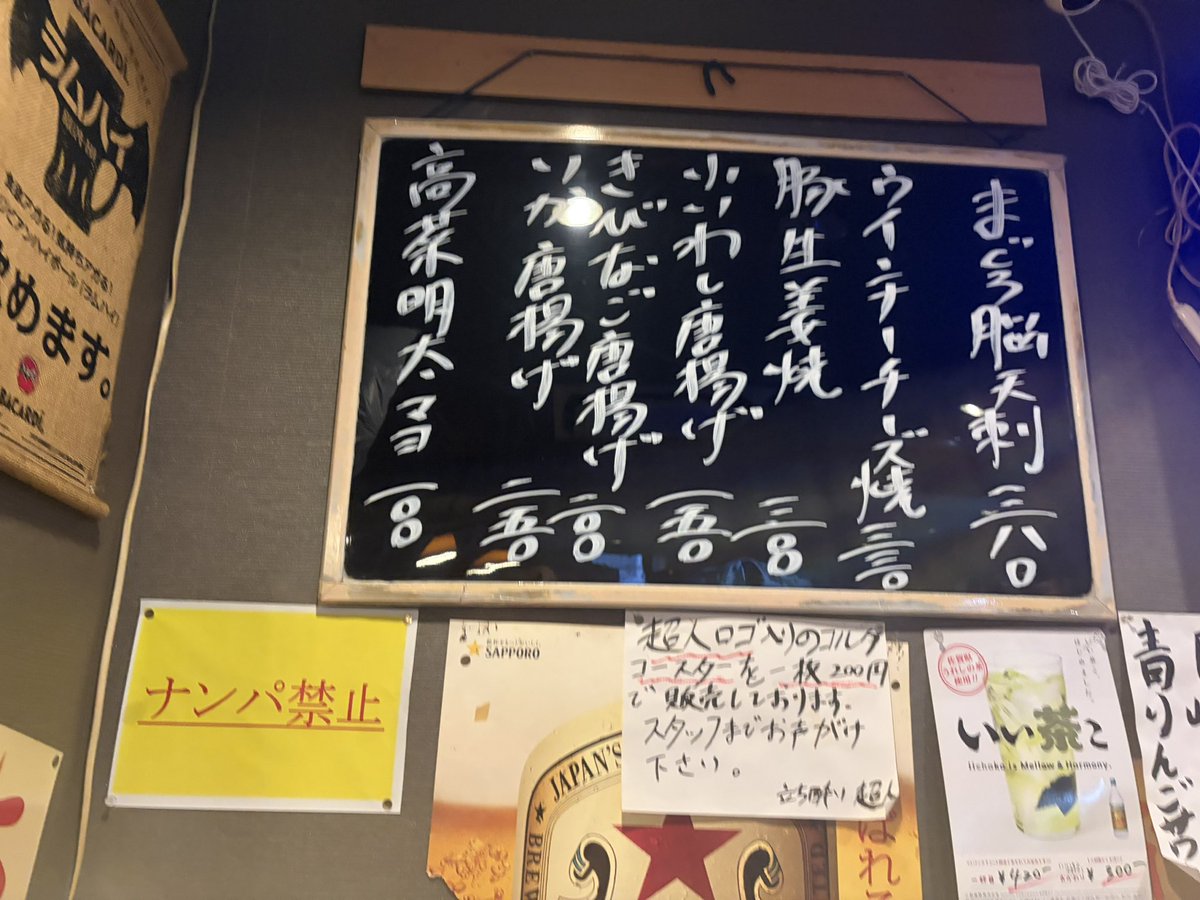 BACARDÍ
ラムハイ
めます。
BACARDÍ
まぐろ脳天刺 三八〇
ウインナーチーズ焼 三三〇
豚生姜焼 三〇〇
小いわし唐揚げ 一五〇
きびなご唐揚げ 二〇〇
いか唐揚げ 二五〇
高菜明太マヨ 一〇〇
ナンパ禁止
SAPPORO
JAPAN'S
BREW
超人ロゴ入りのコルク
コースターを一枚200円
で販売しております。
スタッフまでお声がけ
下さい。
立ち呑み 超人
佐賀県
うれしの茶
使用!!
いい茶こ
iichiko is Mellow & Harmony.
¥420
青りんごサワ